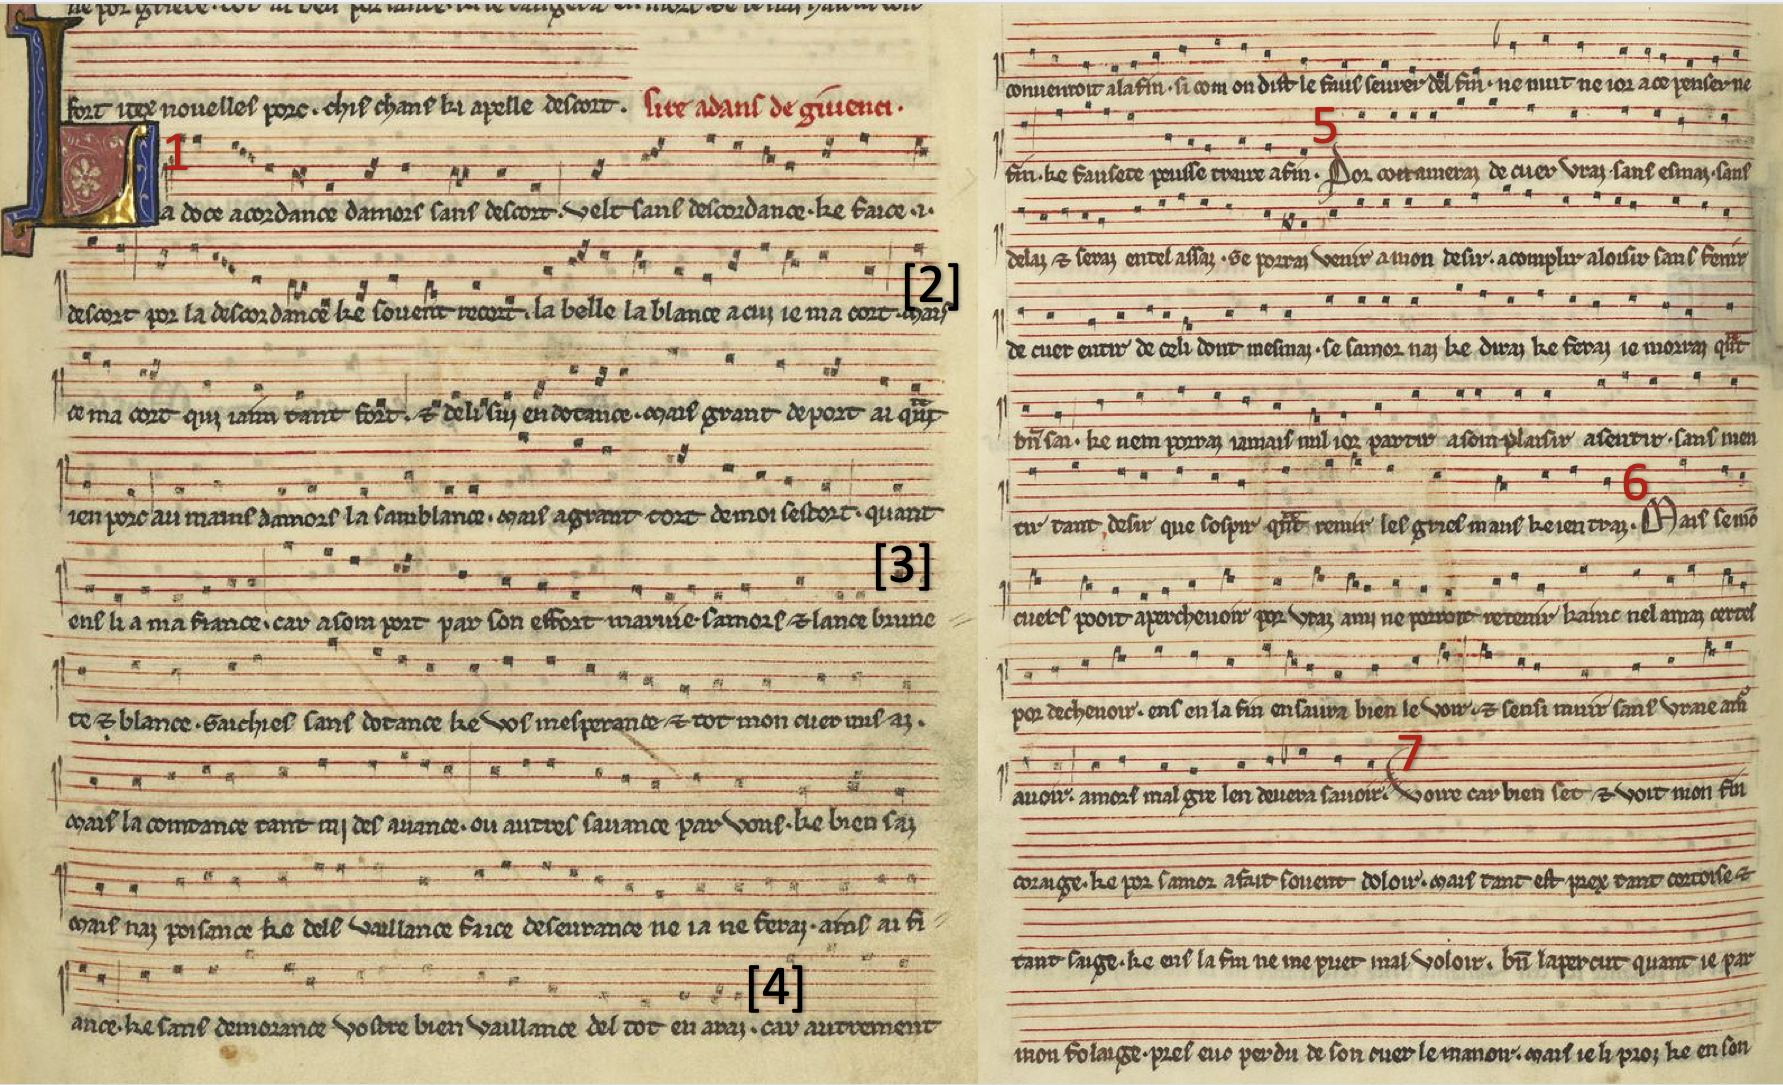 fort irex nouelles porc · chis chans ki apelle descort · sire adans de giuenci ·
1
La doce acordance damors sans descort · velt sans descordance · ke face · i ·
descort por la descordance ke souent recort · la belle la blance a cui ie ma cort · mais
[2]
ce ma cort qui iaim tant fort · & deli sui en dotance · mais grant deport ai qnt
ien porc au mains damors la samblance · mais a grant tort de moi sestort · quant
ens li a ma fiance · car a som port par son effort maruie samors & lance brune
[3]
te & blance · saichies sans dotance ke vos mesperance & tot mon cuer mis ai ·
mais la comtance tant mi des auance · ou autres sauance par vous · ke bien sai
mais nai poisance ke dels vaillance face deseurance ne ia ne ferai · ains ai fi
ance · ke sans demorance vostre bien vaillance del tot en arai · car autrement
[4]
conuentoit ala fin · si com on dist le faus seurer del fin · ne nuit ne ior a ce penser ne
fin · ke fausete peusse traire a fin · Por cou amerai de cuer vrai sans esmai · sans
5
delai & serai entel assai · se porrai venir a mon desir · acomplir a loisir sans fenir
de cuer entir de celi dont mesmai · se samor nai ke dirai ke ferai ie morrai qnt
bn sai · ke nem porrai iamais nul ior partir a som plaisir a sentir · sans men
tir tant desir que sospir qnt remir les gries maus ke ien trai · Mais se mo
6
cuers pooit aperchevoir por vrai ami ne porroit retenir kainc nel amai certes
por dechevoir · ens en la fin en saura bien le voir · & sensi muir sans vraie am
auoir · amors mal gre len deuera sauoir · Voire car bien set & voit mon fin
7
coraige · ke por samor a fait souent doloir · mais tant est prex tant cortoise &
tant saige · ke ens la fin ne me puet mal voloir · bn lapercut quant ie par
mon folaige · pres euc perdu de son cuer le manoir · mais ie li proi ke en son